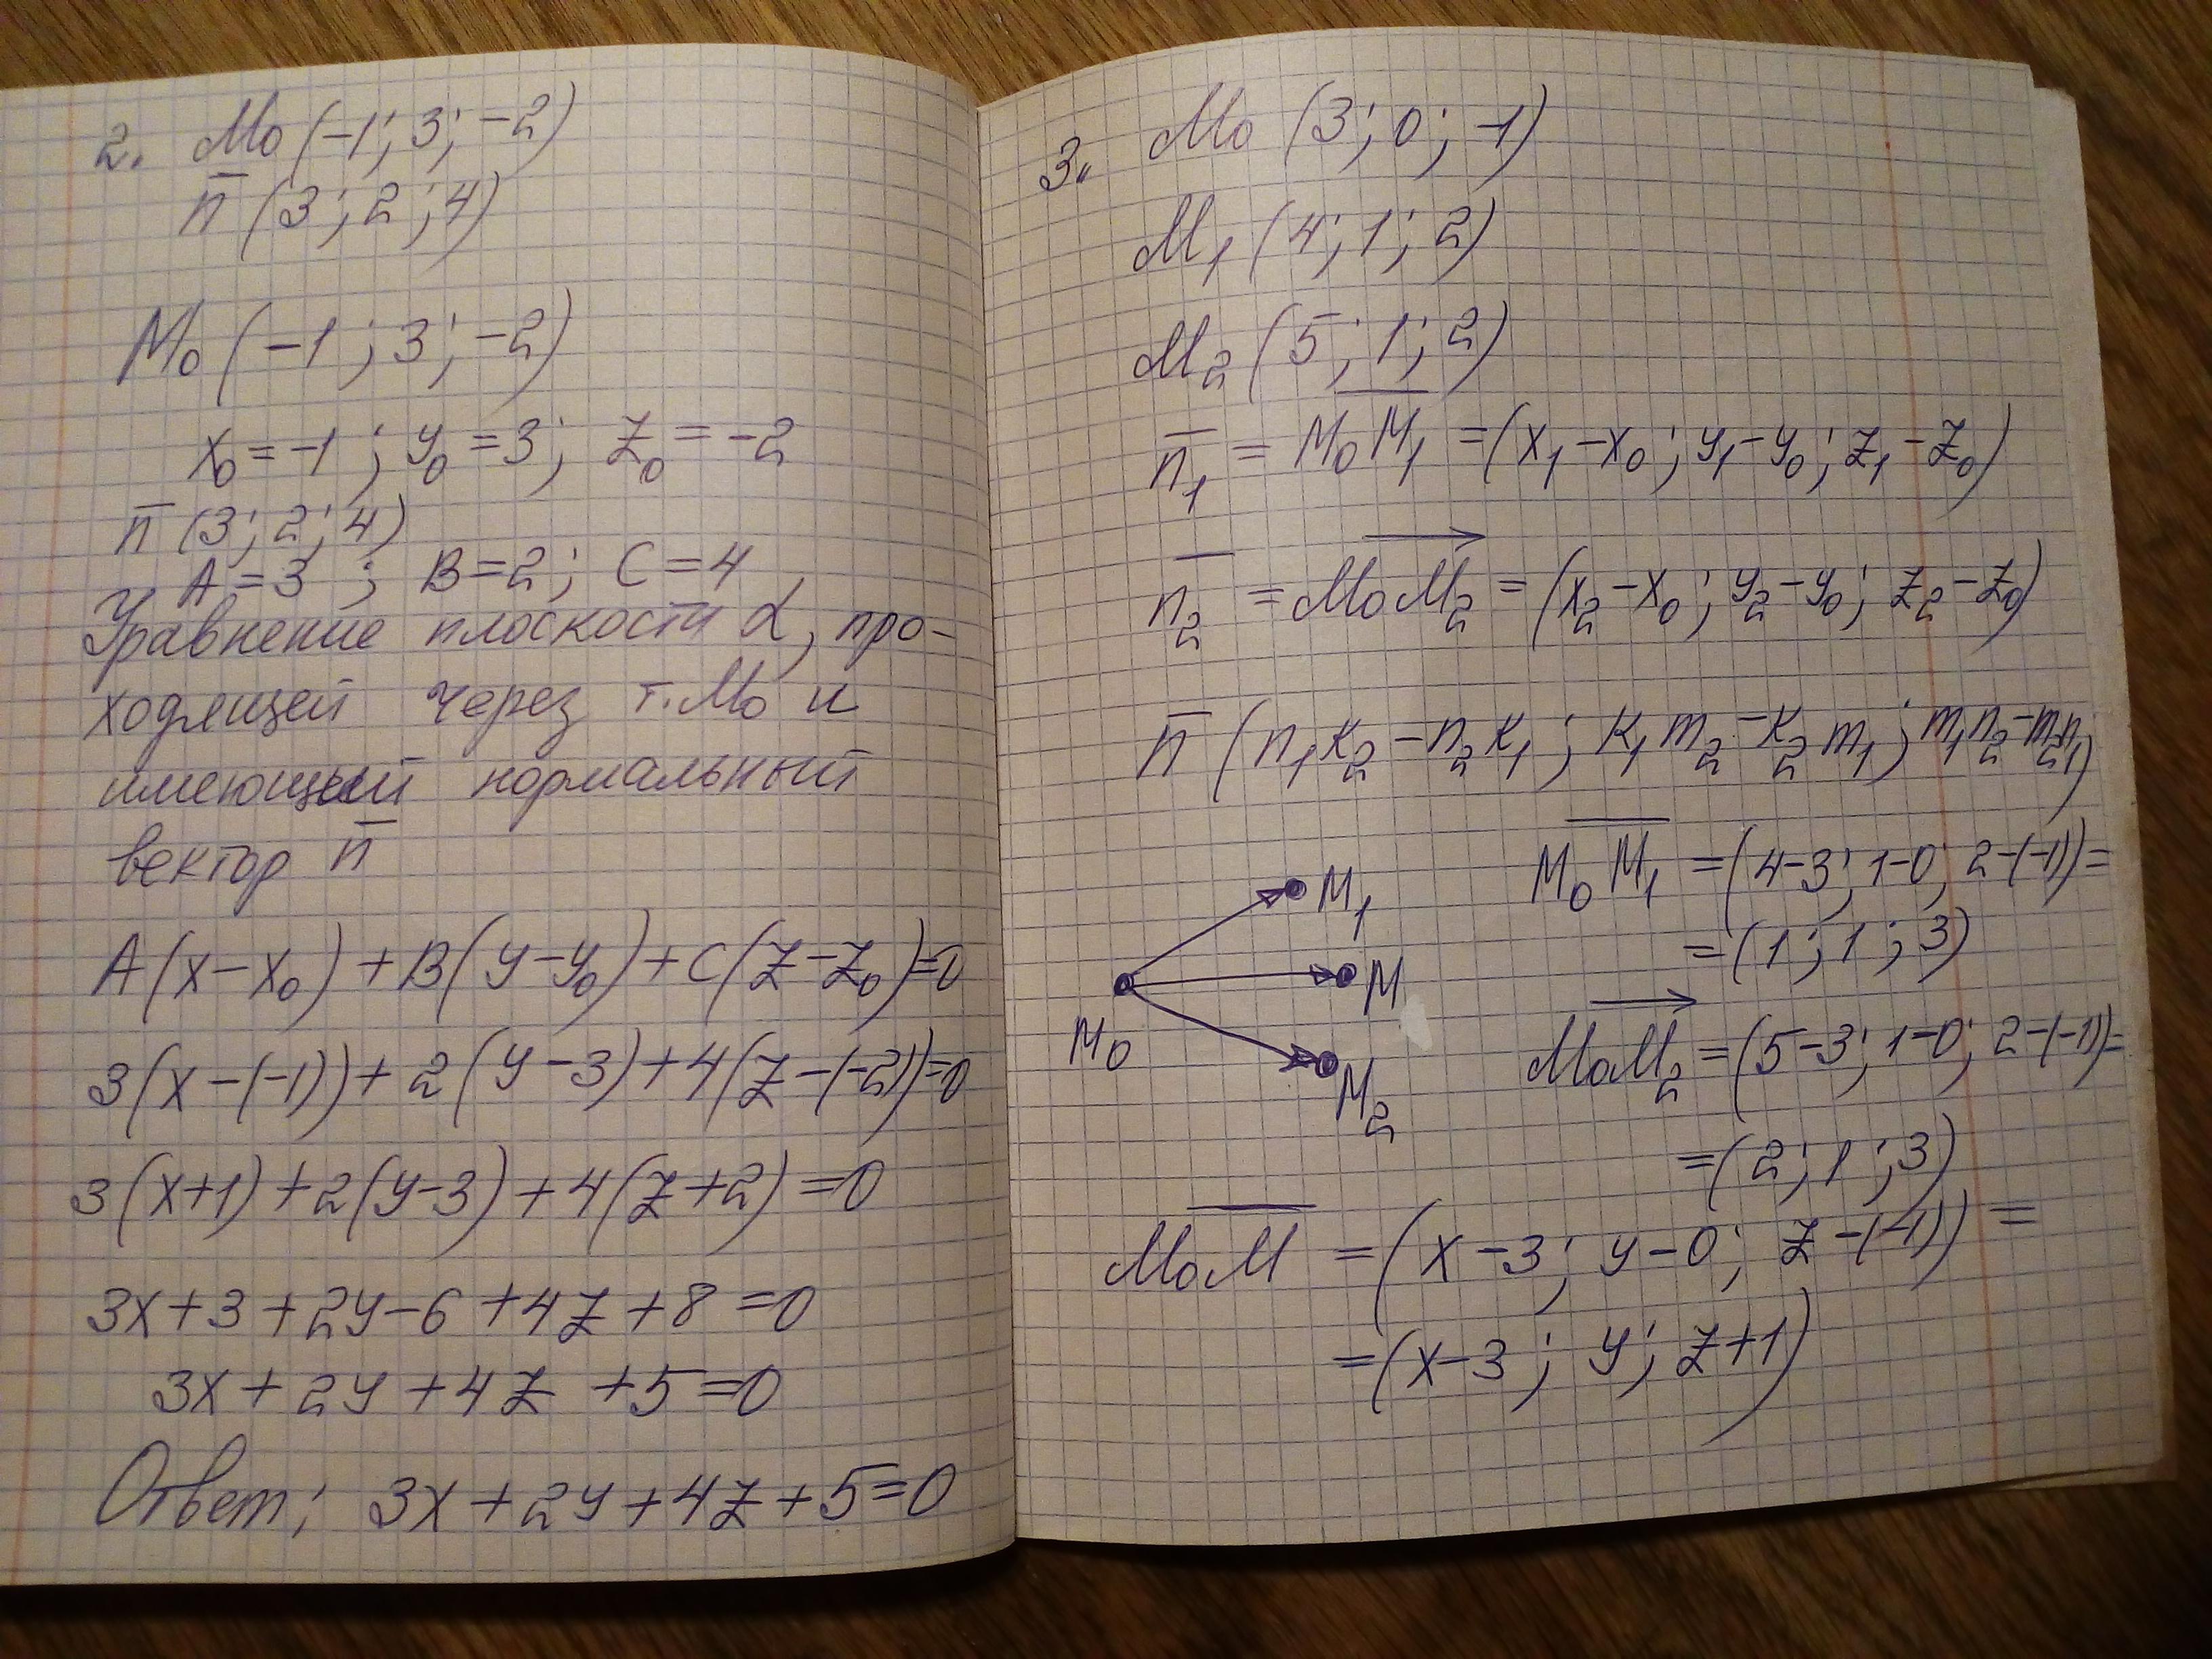 2. M₀ (-1; 3; -2)
n̅ (3; 2; 4)
M₀ (-1; 3; -2)
x₀ = -1; y₀ = 3; z₀ = -2
n̅ (3; 2; 4)
A = 3; B = 2; C = 4
Уравнение плоскости α, про-
ходящей через т. M₀ и
имеющий нормальный
вектор n̅
A(x-x₀) + B(y-y₀) + C(z-z₀) = 0
3(x-(-1)) + 2(y-3) + 4(z-(-2)) = 0
3(x+1) + 2(y-3) + 4(z+2) = 0
3x + 3 + 2y - 6 + 4z + 8 = 0
3x + 2y + 4z + 5 = 0
Ответ; 3x + 2y + 4z + 5 = 0
3. M₀ (3; 0; -1)
M₁ (4; 1; 2)
M₂ (5; 1; 2)
n̅₁ = M₀M₁ = (x₁-x₀; y₁-y₀; z₁-z₀)
n̅₂ = M₀M₂ = (x₂-x₀; y₂-y₀; z₂-z₀)
n̅ (n₁k₂ - n₂k₁; k₁m₂ - k₂m₁; m₁n₂ - m₂n₁)
M₀M₁ = (4-3; 1-0; 2-(-1)) =
= (1; 1; 3)
M₁
M
M₀
M₂
M₀M₂ = (5-3; 1-0; 2-(-1)) =
= (2; 1; 3)
M₀M = (x-3; y-0; z-(-1)) =
= (x-3; y; z+1)